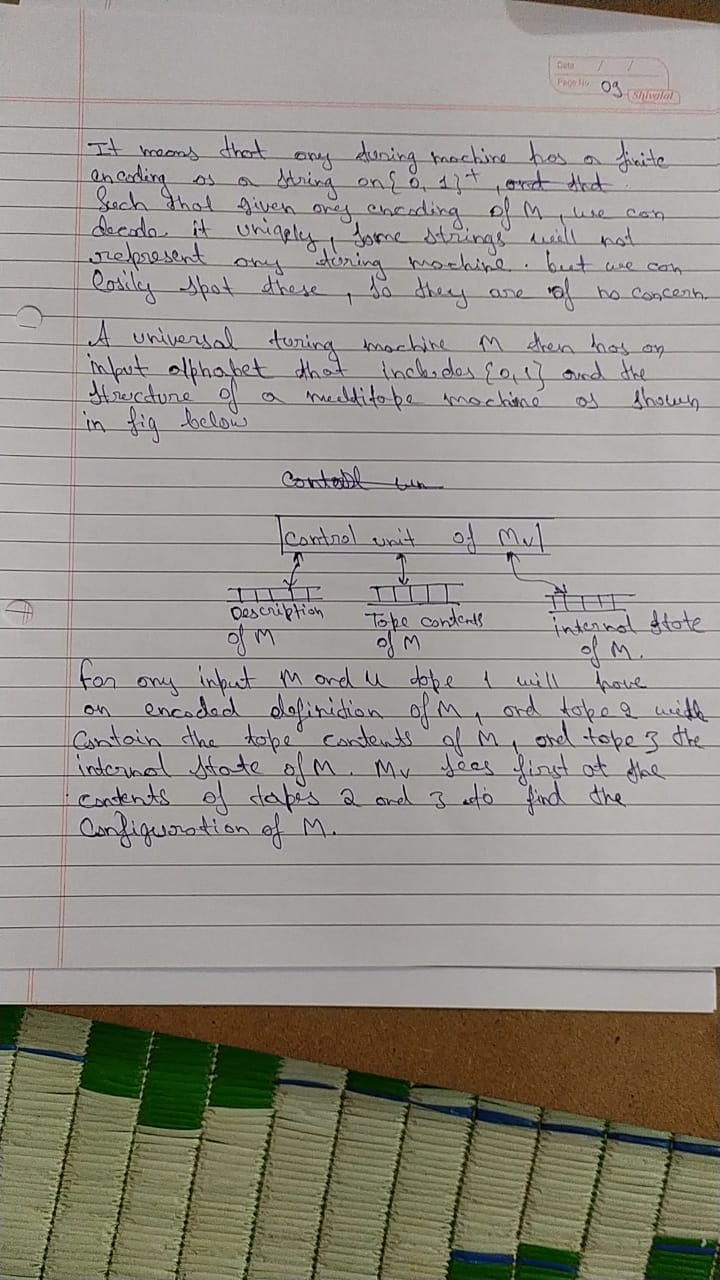 Date / /
Page No. 09
Shivalal
It means that any turing machine has a finite
encoding as a string on {0, 1}+, and that
Such that given any encoding of M, we can
decode it uniqely, some strings will not
represent any turing machine. but we can
Easily spot these, so they are of no concern.
A universal turing machine M then has an
input alphabet that includes {0,1} and the
structure of a multitape machine as shown
in fig below
Contobl un
Control unit of Mu
Description Tape contents internal state
of M of M of M.
for any input M and u tape 1 will have
an encoded definition of M, and tape 2 will
Contain the tape contents of M, and tape 3 the
internal state of M. Mu sees first at the
contents of tapes 2 and 3 to find the
Configuration of M.